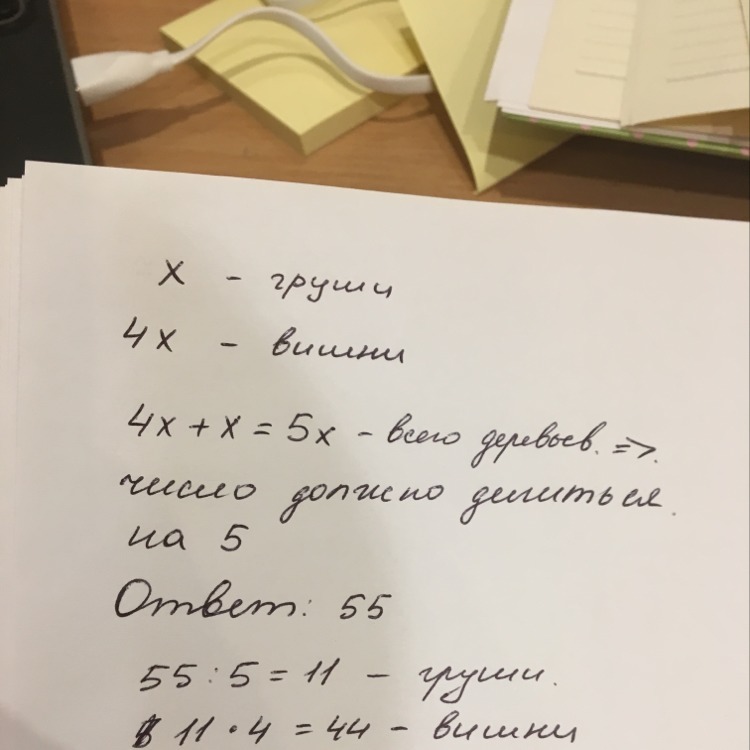 x - груши
4x - вишни
4x + x = 5x - всего деревьев. =>.
число должно делиться.
на 5
Ответ: 55
55 : 5 = 11 - груши.
11 · 4 = 44 - вишни